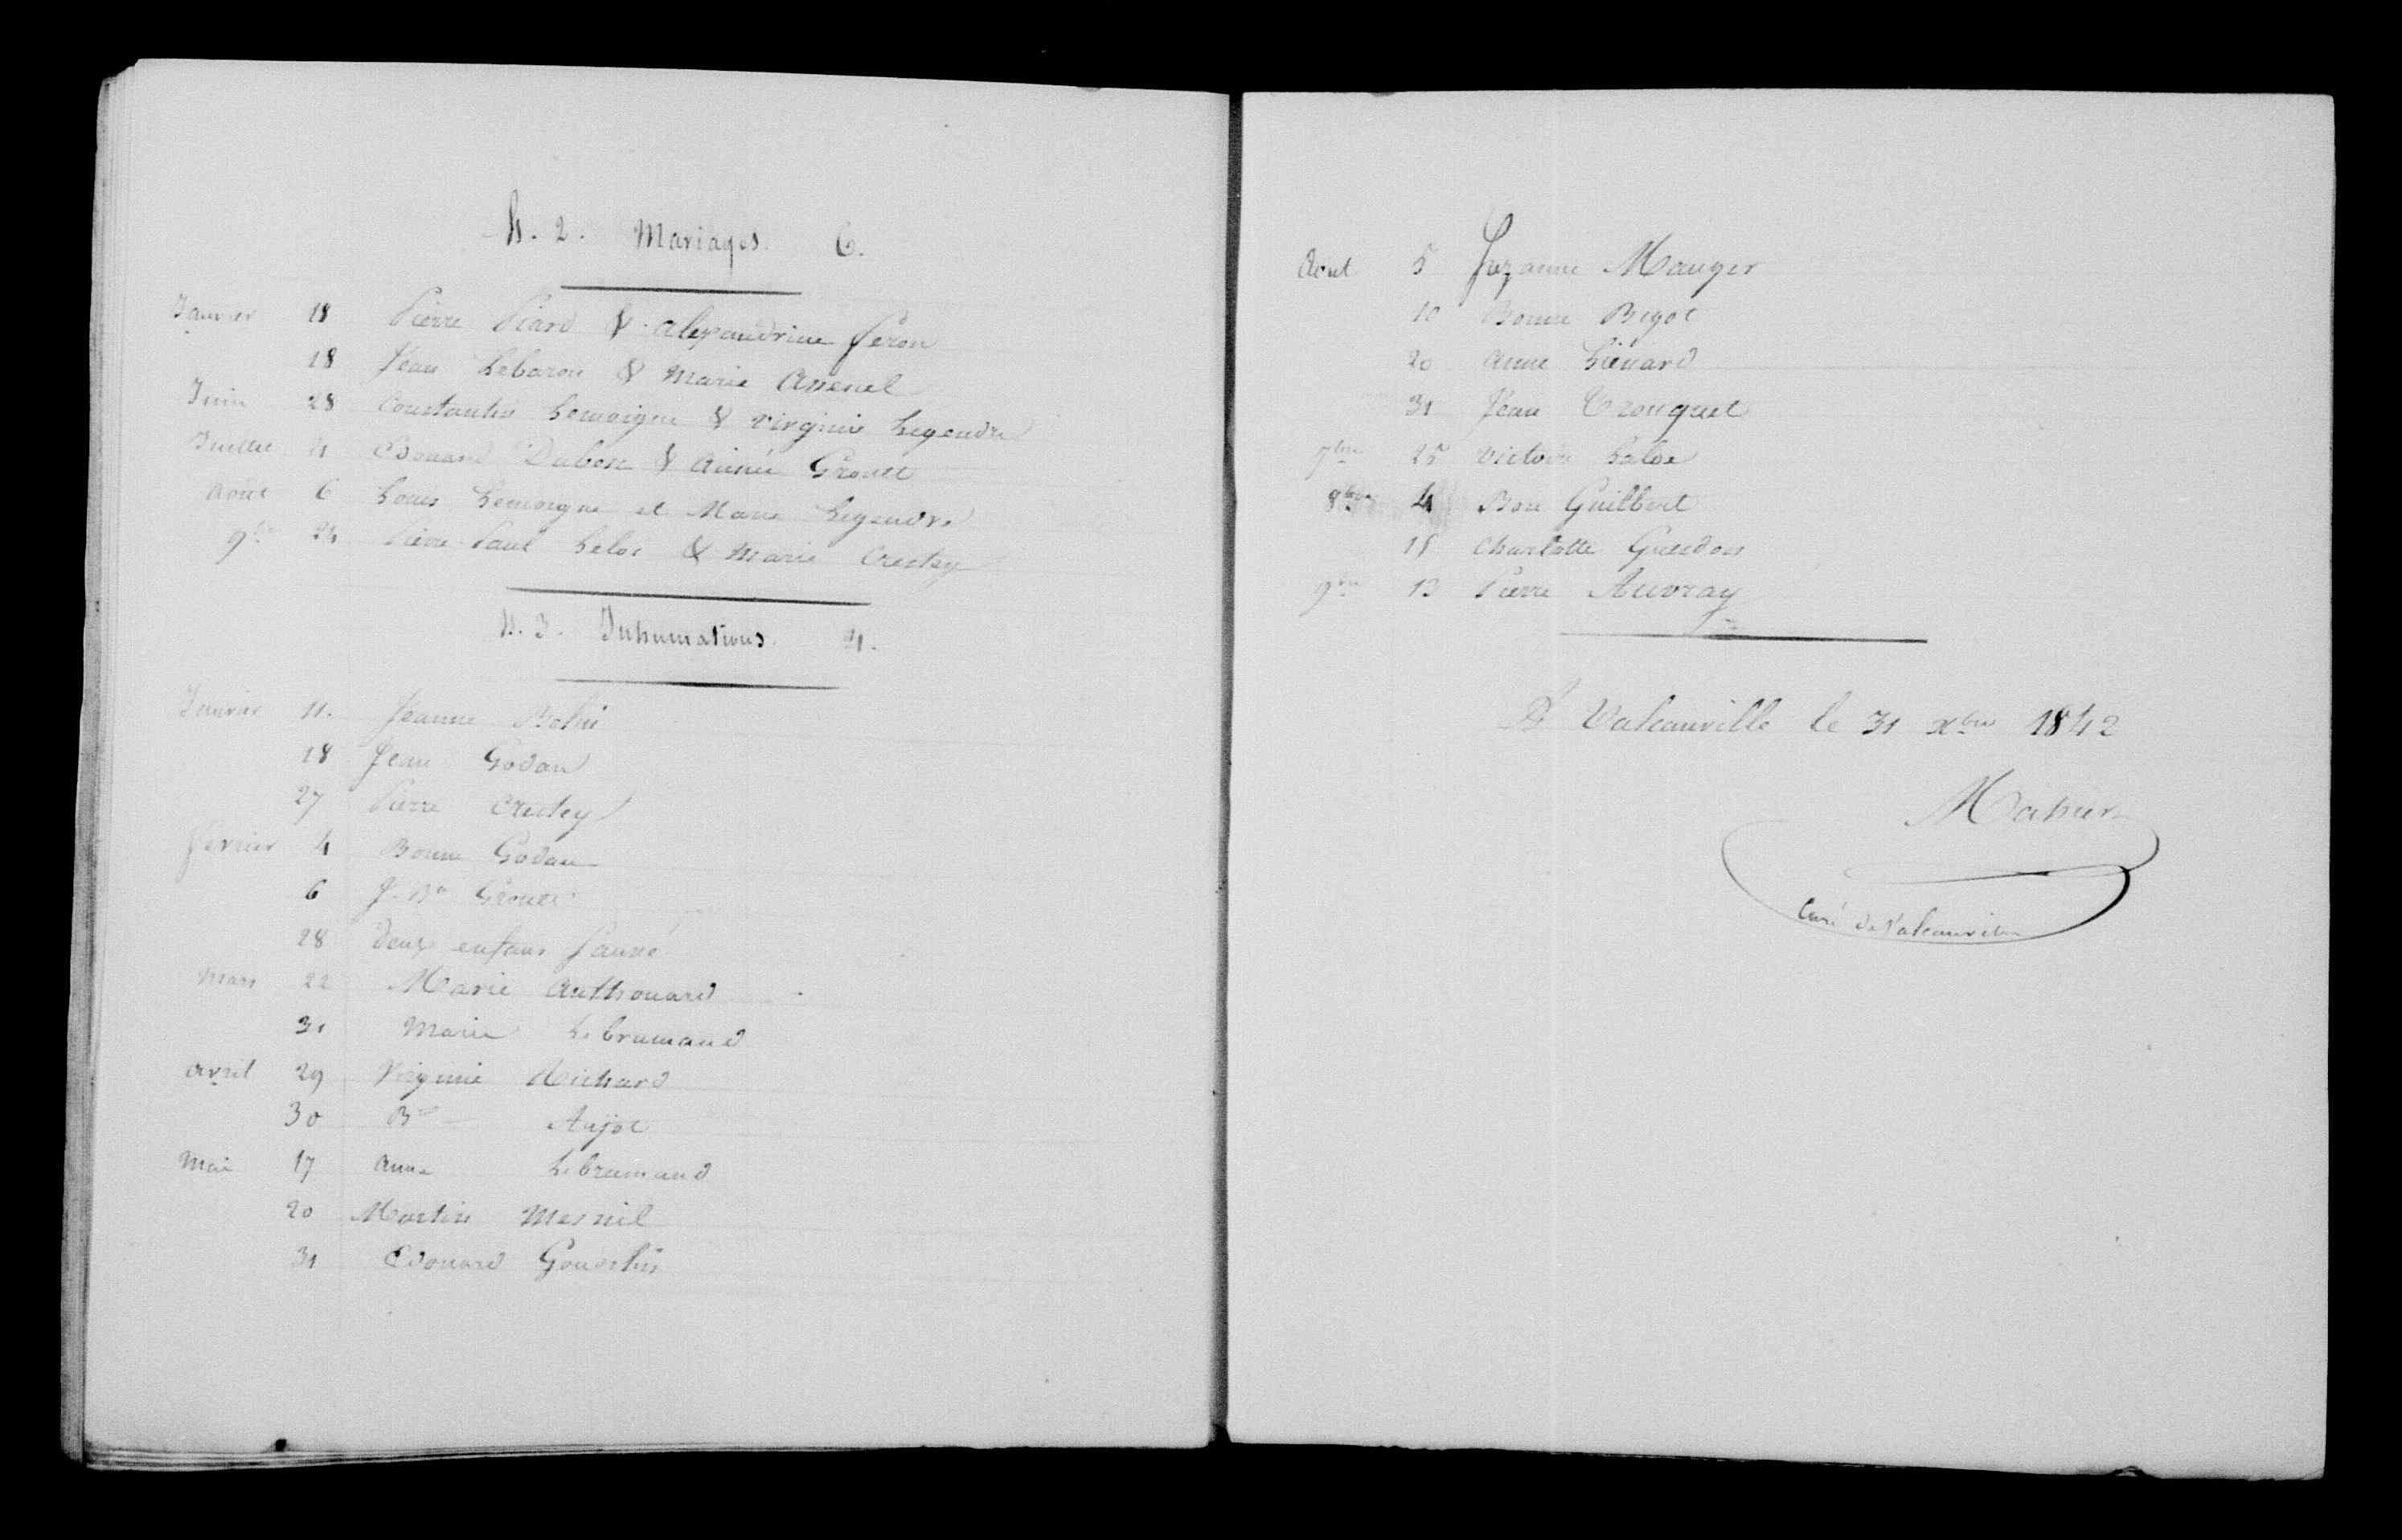 N. 2. Mariages. 6.
Janvier 18 Pierre Piard & alexandrine feron
18 Jean Lebaron & Marie Assenel
Juin 28 Constantin Lemoigne & Virginie Legendre
Juillet 4 Edouard Dubosc & Aimée Groult
Août 6 Louis Lemoigne et Marie Legendre
9bre 24 Pierre Paul Leloe & Marie Crestey
N. 3. Inhumations. 21.
Janvier 11. Jeanne
18 Jean Godan
27 Pierre Crestey
février 4 Bonne Godan
6 J. Bte Groult
28 deux enfans fauvé
Mars 22 Marie Authouard
31 Marie Lebrumand
avril 29 Virginie Richard
30 Aujot
Mai 17 Anne Lebrumand
20 Martin Mesnil
31 Edouard
Aout 5 Suzanne Mauger
10 Bonne Bigot
20 Anne Liénard
31 Jean Trouquet
7bre 25 Victoire Leloe
8bre 4 Bon Guilbert
18 Charlotte Guesdon
9bre 13 Pierre Auvray
A Valcanville le 31 xbre 1842
Mahieu
Curé de Valcanville